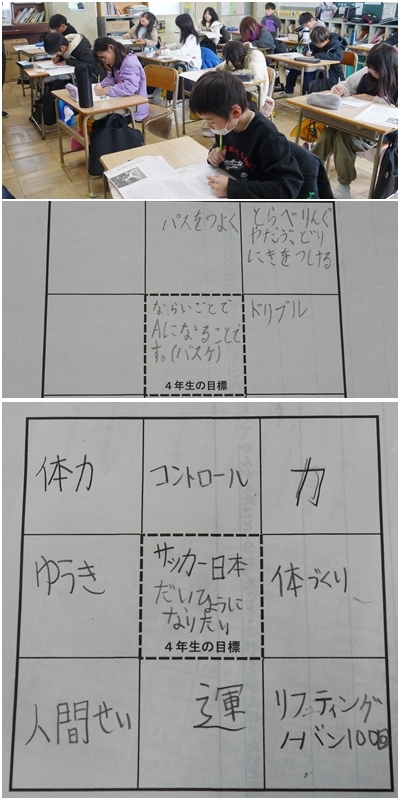 パスをつよく
とらべりんぐ
やだぶ、どり
にきをつける
ならいごとで
Aになることで
す。(バスケ)
4年生の目標
ドリブル
体力
コントロール
力
ゆうき
サッカー日本
だいひょうに
なりたい
4年生の目標
体づくり
人間せい
運
リフティング
ノーバン100回